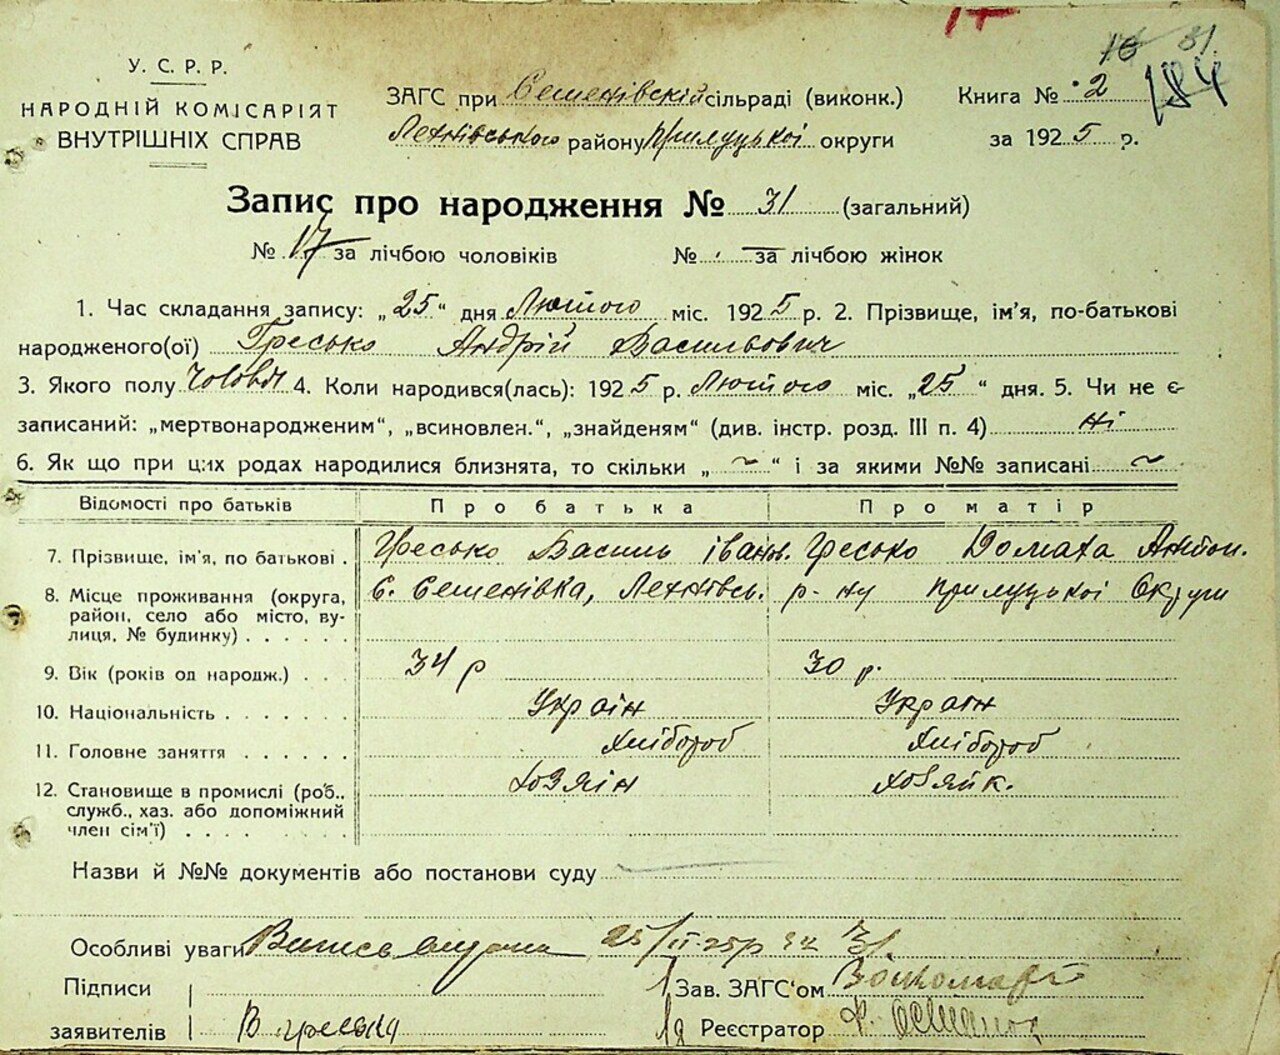 1т
16 31.
184
У. С. Р. Р.
НАРОДНІЙ КОМІСАРІЯТ
ВНУТРІШНІХ СПРАВ
ЗАГС при Семенівскій сільраді (виконк.)
Книга № 2
району Прилуцької округи
за 1925 р.
Запис про народження № 31 (загальний)
№ 17 за лічбою чоловіків № — за лічбою жінок
1. Час складання запису: „25“ дня Лютого міс. 1925 р. 2. Прізвище, ім'я, по-батькові
народженого(ої) Гресько Андрій Васильович
3. Якого полу чоловіч 4. Коли народився(лась): 1925 р. Лютого міс. „25“ дня. 5. Чи не є
записаний: „мертвонародженим“, „всиновлен.“, „знайденям“ (див. інстр. розд. III п. 4) ні
6. Як що при цих родах народилися близнята, то скільки „ ~ “ і за якими №№ записані ~
Відомості про батьків Про батька Про матір
7. Прізвище, ім'я, по батькові . Гресько Василь Іванов. Гресько Домаха Антон.
8. Місце проживання (округа, район, село або місто, вулиця, № будинку) . . . . . . с. Семенівка, р-ну Прилуцької Округи
9. Вік (років од народж.) . . . 34 р 30 р.
10. Національність . . . . . . . Україн Україн
11. Головне заняття . . . . . . Хлібороб Хлібороб
12. Становище в промислі (роб., служб., хаз. або допоміжний член сім'ї) . . . . Хозяін Хозяйк.
Назви й №№ документів або постанови суду
Особливі уваги Випись видана 25/II-25р за № 31.
Підписи
Зав. ЗАГС'ом
заявителів В Греська
Реєстратор